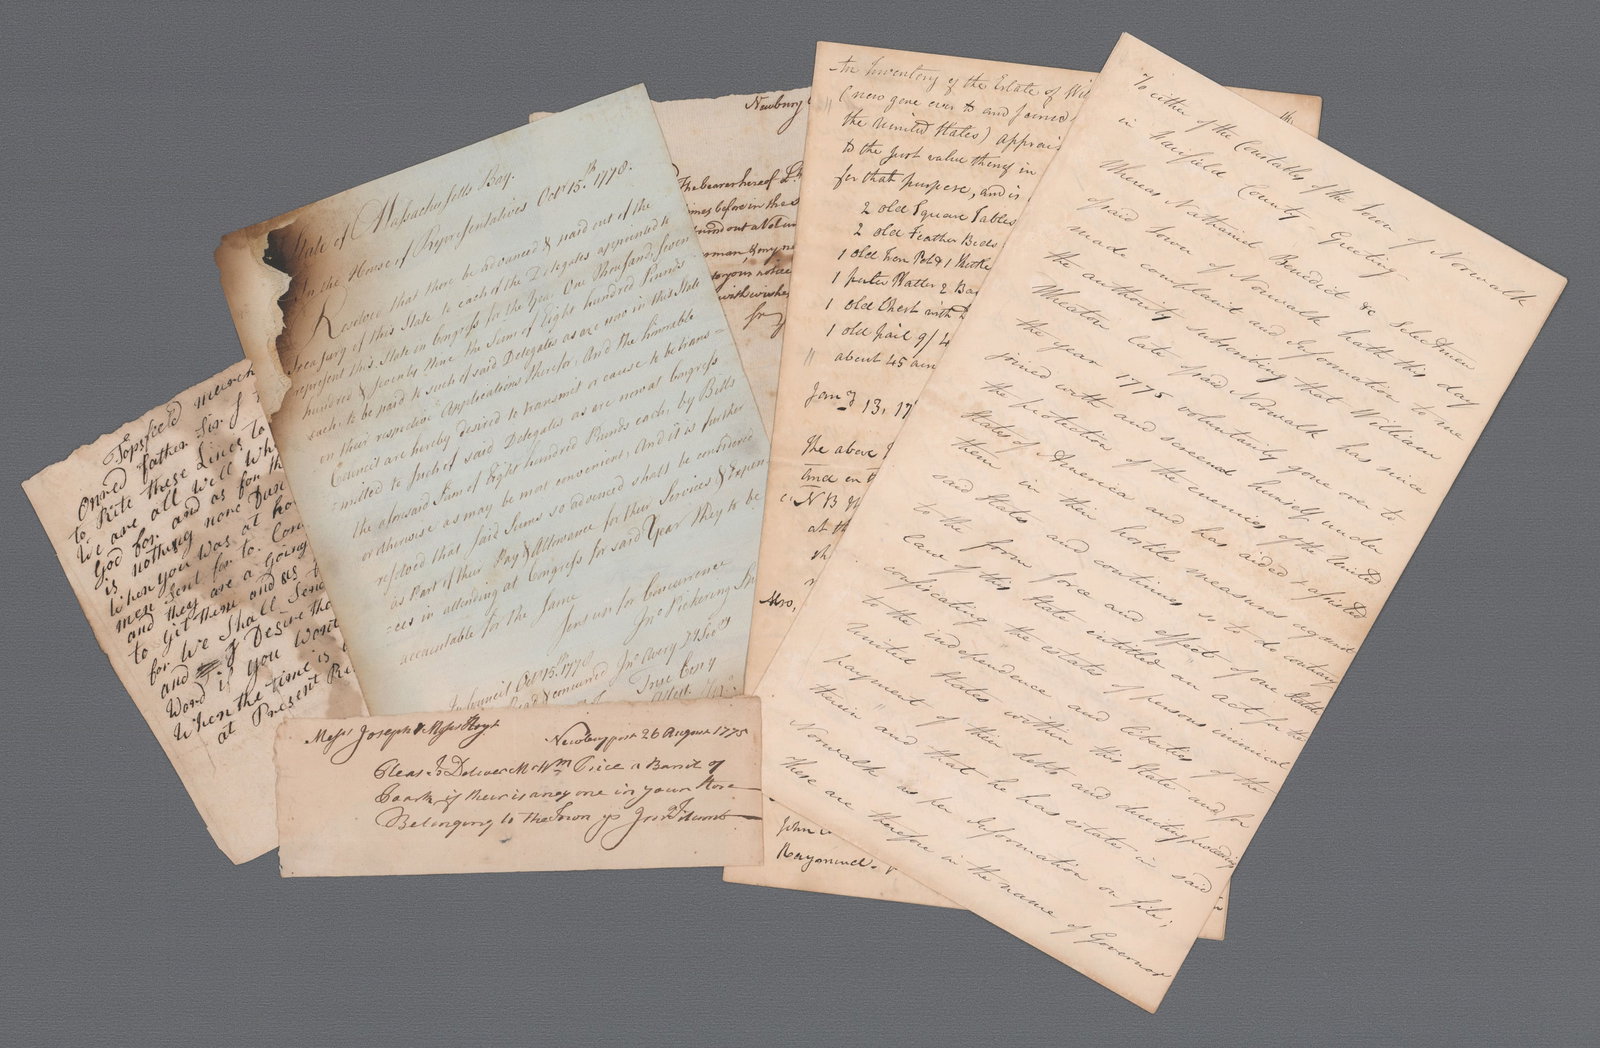 Topsfield march
Onnred father Sir I
to Rite these Lines to
We are all Will Wh
God for. and as for th
is nothing more Dus
When you Was at ho
men Sent for to. Con
and they are a going
to git them and us t
for We Shall Send
and I Desire tha
Word if you Want
When the time is
at Present Re
State of Massachusetts Bay.
In the House of Representatives Octr 15.th 1778.
Resolved that there be advanced & paid out of the
Treasury of this State to each of the Delegates appointed to
represent this State in Congress for the Year One Thousand, seven
hundred & seventy Nine the Sum of Eight hundred Pounds
each; to be paid to such of said Delegates as are now in this State
on their respective Applications therefor, And the honorable
Council are hereby desired to transmit or cause to be trans=
=mitted to Such of said Delegates as are now at Congress
the aforesaid Sum of Eight hundred Pounds each, by Bills
or otherwise as may be most convenient, And it is further
resolved that said Sums so advanced shall be considered
as Part of their Pay & Allowance for their Services & Expen
=ces in attending at Congress for said Year they to be
accountable for the Same
Sent up for Concurrence
Jno Pickering Spk
In Council Octr 15th 1778
Read & concurred Jno Avery D Secy
True Copy
Messrs Joseph & Moses Hoyt
Newburyport 26 August 1775
Pleas to Deliver Mr Wm Price a Barril of
Poark if their is any one in your Store
Belonging to the Town yr Jno Titcomb
Newbury
The bearer hereof Lt.
imes before in the s
to your notice
with wishes
An Inventory of the Estate of Wil
(now gone over to and Joined
the Uunited States) apprais
to the Just value thereof in
for that purpose, and is
2 old Square Tables
2 old Feather Beds
1 old Iron Pot & 1 Kittle
1 puter Platter 2 Ba
1 old Chest with
1 old pail 9/4
" about 45 acr
Janry 13, 17
The above
and en
NB
at th
John
Raymond
To either of the Constables of the Town of Norwalk
in Fairfield County Greeting
Whereas Nathaniel Benedict &c Selectmen
of said Town of Norwalk hath this day
made complaint and Information to me
the authority subscribing that William
Wheaton late of said Norwalk has since
the year 1775 voluntarily gone over to
joined with and screened himself under
the protection of the enemies of the United
States of America and has aided & assisted
them in their hostile measures against
said States and continues so to do contrary
to the form force and effect of one Statute
Law of this State entitled an act for the
confiscating the estates of persons inimical
to the independence and liberties of the
United States within this State and for
payment of their debts and directing proceedings
therein" and that he has estate in said
Norwalk as per Information on file;
These are therefore in the name of Governor